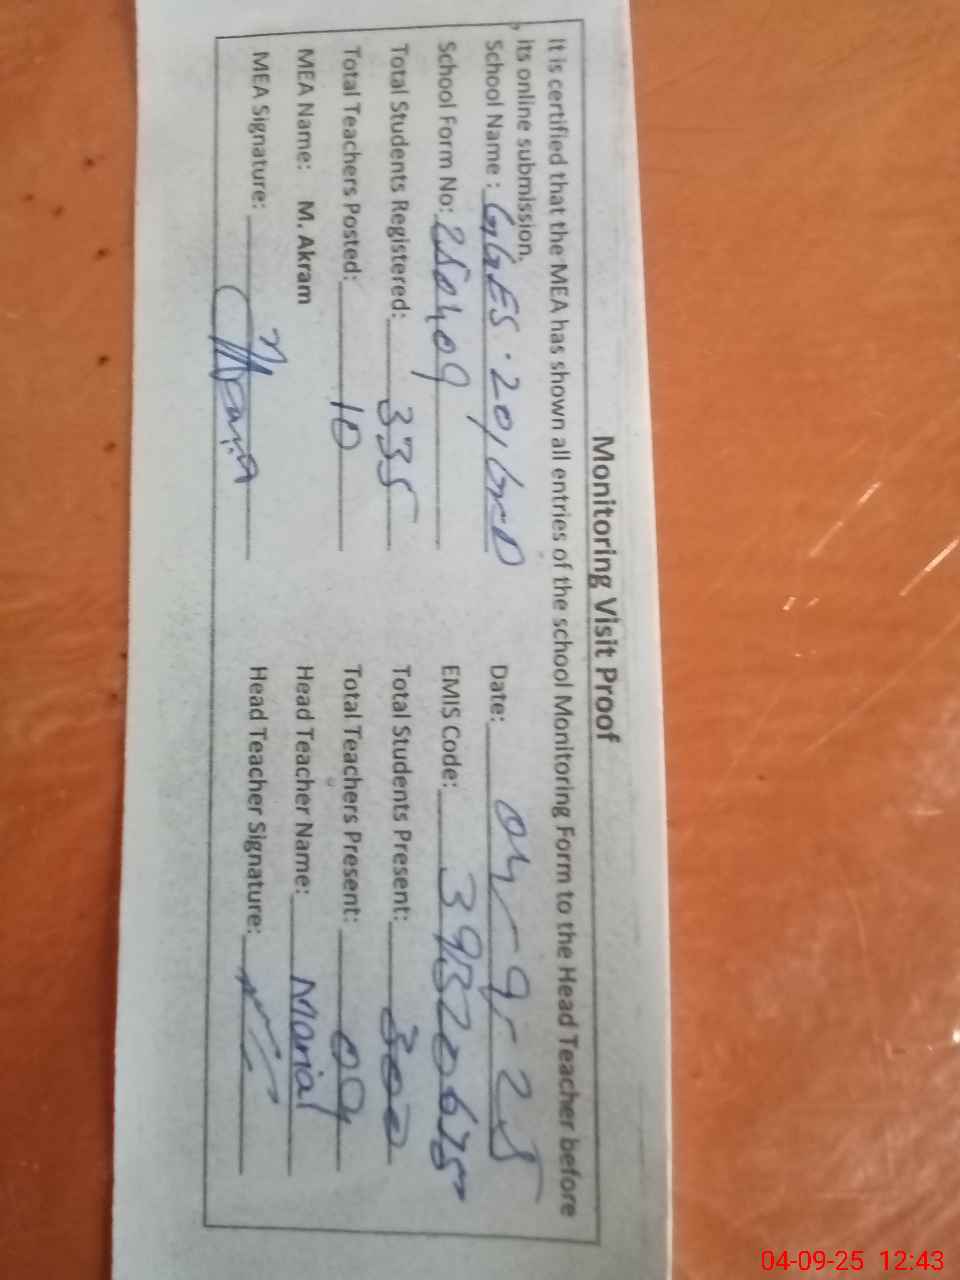 Monitoring Visit Proof
It is certified that the MEA has shown all entries of the school Monitoring Form to the Head Teacher before
its online submission.
School Name: GGES. 201 Date: 04-9-25
School Form No: 250409 EMIS Code: 39320675
Total Students Registered: 335 Total Students Present: 302
Total Teachers Posted: 10 Total Teachers Present: 09
MEA Name: M. Akram Head Teacher Name:
MEA Signature: Head Teacher Signature:
04-09-25 12:43